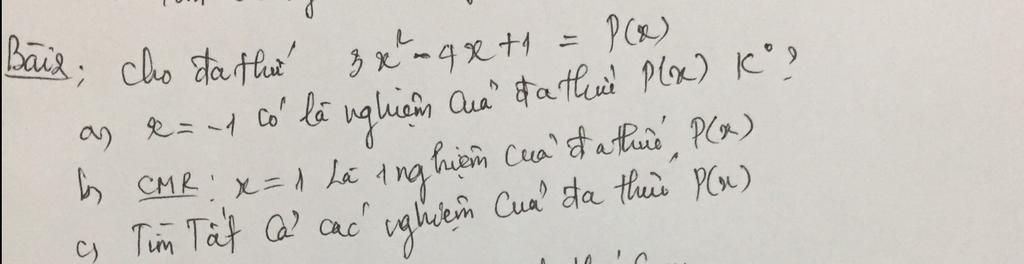 Bài 2; cho đa thức 3x² - 4x + 1 = P(x)
a) x = -1 có là nghiệm của đa thức P(x) K° ?
b) CMR: x = 1 Là 1 nghiệm của đa thức P(x)
c) Tìm Tất cả các nghiệm của đa thức P(x)